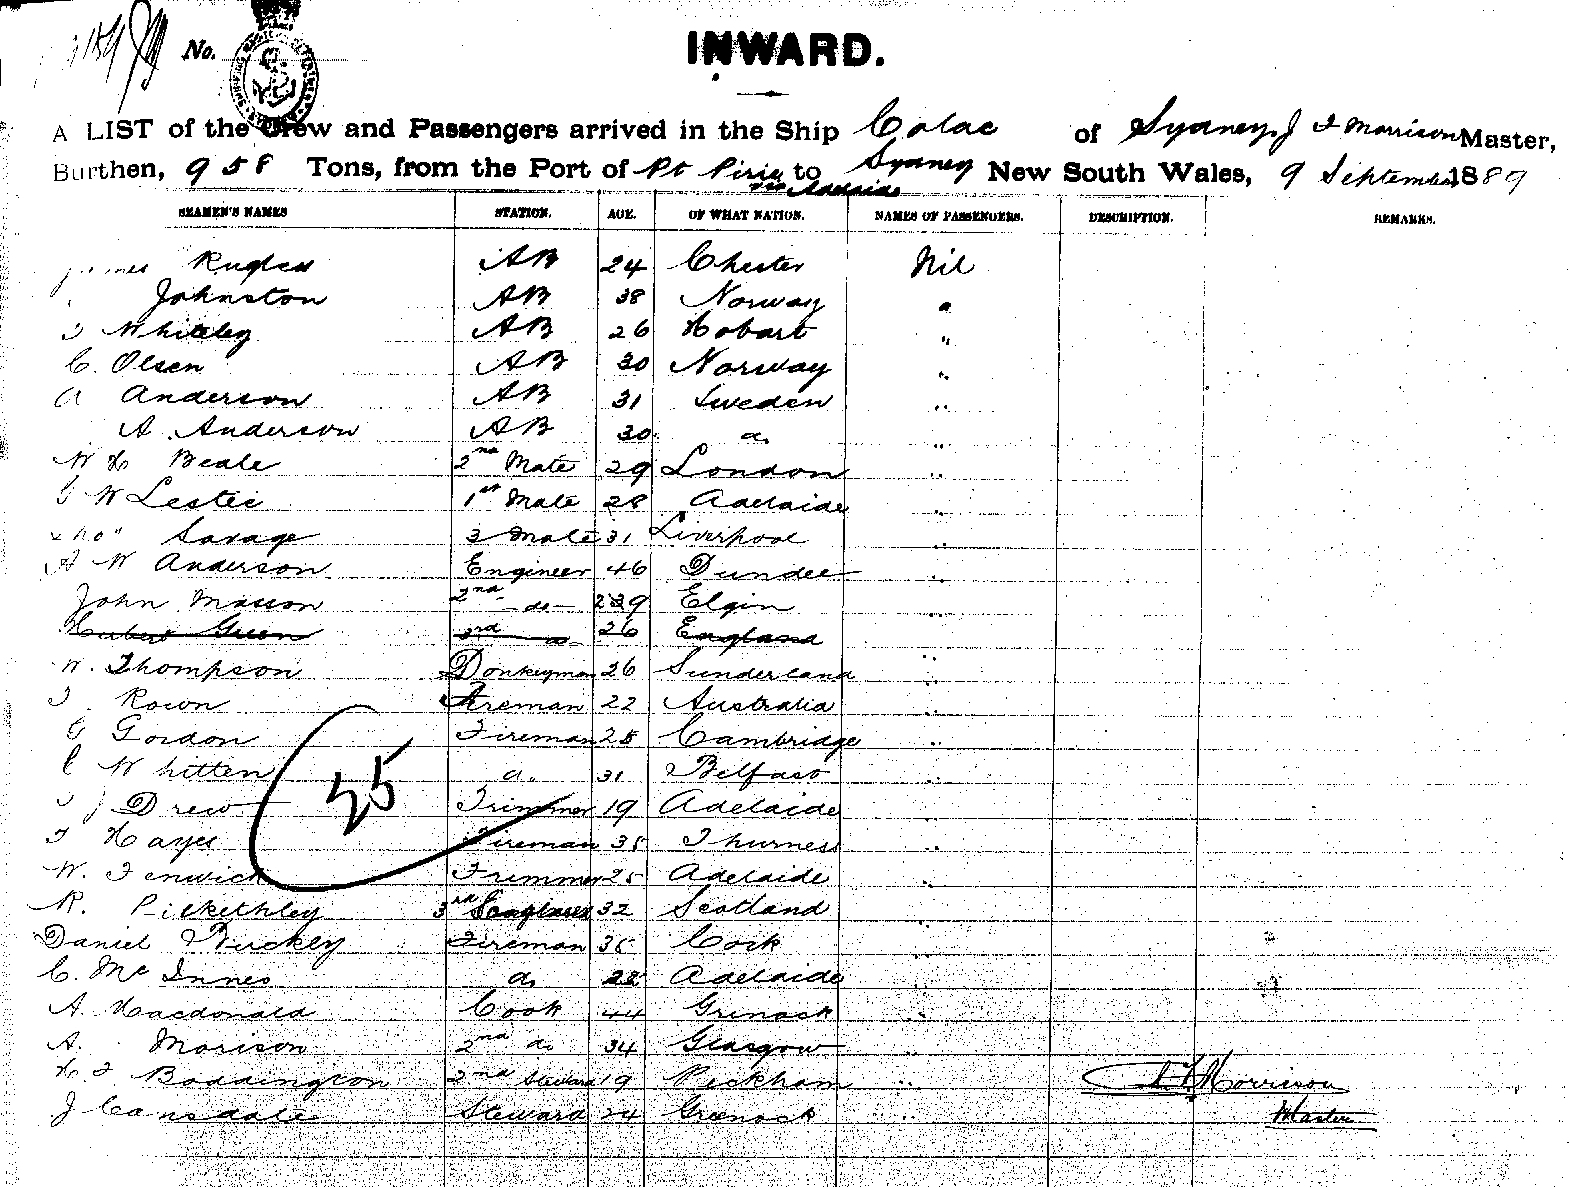 No.
INWARD.
A LIST of the Crew and Passengers arrived in the Ship Colac of Sydney, J F Morrison Master,
Burthen, 958 Tons, from the Port of Pt Pirie to Sydney New South Wales, 9 September 1889
via Adelaide
SEAMEN'S NAMES STATION. AGE. OF WHAT NATION. NAMES OF PASSENGERS. DESCRIPTION. REMARKS.
James AB 24 Chester Nil
Johnston AB 38 Norway "
Whiteley AB 26 Hobart "
C. Olsen AB 30 Norway "
A Anderson AB 31 Sweden "
A. Anderson AB 30 do "
W H Beale 2nd Mate 29 London "
G W Leslie 1st Mate 28 Adelaide "
Savage 3 Mate 31 Liverpool "
A W Anderson Engineer 46 Dundee "
John Masson 2nd do 39 Elgin "
Herbert Green 3rd do 26 England
W. Thompson Donkeyman 26 Sunderland "
Fireman 22 Australia "
G Gordon Fireman 28 Cambridge "
C Whitten do 31 Belfast "
J Drew Trimmer 19 Adelaide "
25
T Hayes Fireman 35 "
W. Fenwick Trimmer 25 Adelaide "
R. Pickethley 3rd Engineer 32 Scotland "
Daniel Fireman 35 Cork "
C. McInnes do 28 Adelaide "
A. Macdonald Cook 44 Grenock "
A. Morison 2nd do 34 Glasgow "
H. J Boddington 2nd Steward 19 Peckham "
J Cansdale Steward 24 Greenock "
J F Morrison
Master